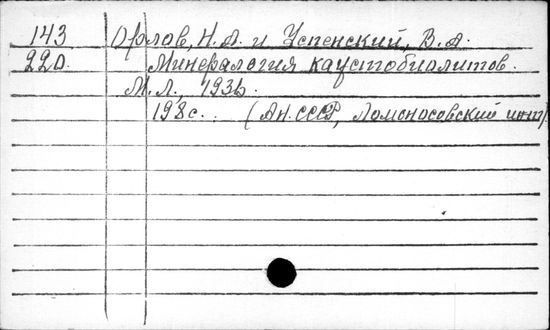 143 Орлов, Н.А. и Успенский, В.А.
220. Минералогия каустобиолитов.
М.Л., 1936.
198с. (Ан.СССР, Ломоносовский инт)